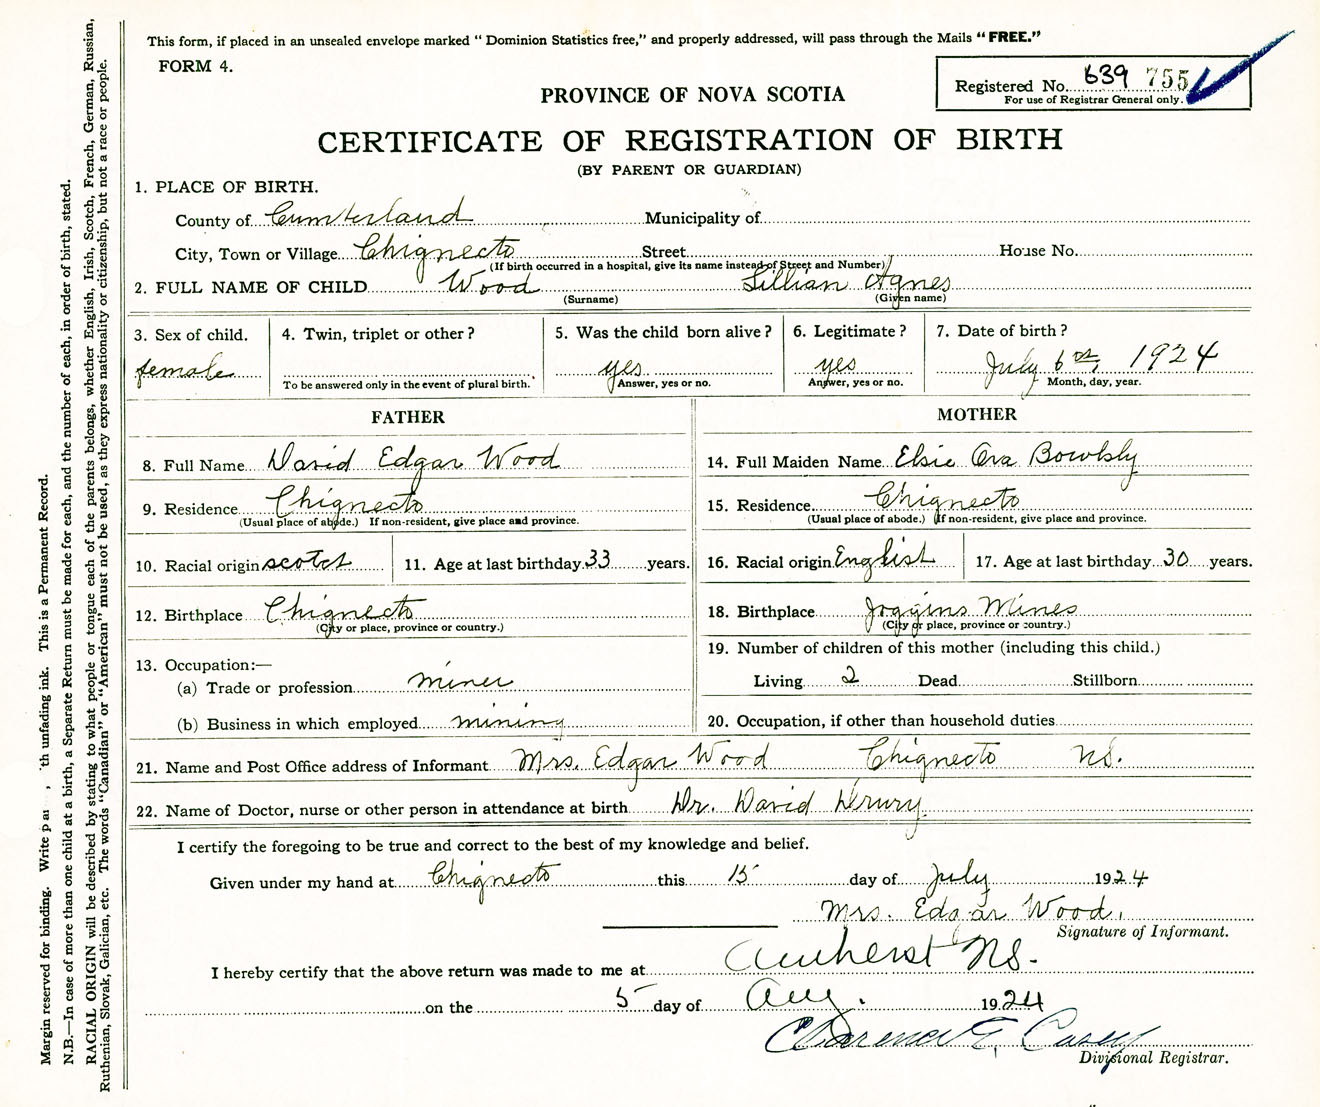 This form, if placed in an unsealed envelope marked "Dominion Statistics free," and properly addressed, will pass through the Mails "FREE."
FORM 4.
Registered No. 639 755
For use of Registrar General only.
PROVINCE OF NOVA SCOTIA
CERTIFICATE OF REGISTRATION OF BIRTH
(BY PARENT OR GUARDIAN)
1. PLACE OF BIRTH.
County of Cumberland Municipality of
City, Town or Village Chignecto Street House No.
(If birth occurred in a hospital, give its name instead of Street and Number)
2. FULL NAME OF CHILD Wood Lillian Agnes
(Surname) (Given name)
3. Sex of child. 4. Twin, triplet or other? 5. Was the child born alive? 6. Legitimate? 7. Date of birth?
female yes yes July 6th, 1924
To be answered only in the event of plural birth. Answer, yes or no. Answer, yes or no. Month, day, year.
FATHER MOTHER
8. Full Name David Edgar Wood 14. Full Maiden Name Elsie Ora Bowlsly
9. Residence Chignecto 15. Residence. Chignecto
(Usual place of abode.) If non-resident, give place and province. (Usual place of abode.) If non-resident, give place and province.
10. Racial origin scotch 11. Age at last birthday 33 years. 16. Racial origin English 17. Age at last birthday 30 years.
12. Birthplace Chignecto 18. Birthplace Joggins Mines
(City or place, province or country.) (City or place, province or country.)
13. Occupation:— 19. Number of children of this mother (including this child.)
(a) Trade or profession miner Living 2 Dead Stillborn
(b) Business in which employed mining 20. Occupation, if other than household duties
21. Name and Post Office address of Informant Mrs. Edgar Wood Chignecto NS.
22. Name of Doctor, nurse or other person in attendance at birth Dr. David Drury
I certify the foregoing to be true and correct to the best of my knowledge and belief.
Given under my hand at Chignecto this 15 day of July 1924
Mrs. Edgar Wood.
Signature of Informant.
I hereby certify that the above return was made to me at Amherst NS.
on the 5 day of Aug. 1924
Clarence E. Casey
Divisional Registrar.
Margin reserved for binding. Write th unfading ink. This is a Permanent Record.
N.B.—In case of more than one child at a birth, a Separate Return must be made for each, and the number of each, in order of birth, stated.
RACIAL ORIGIN will be described by stating to what people or tongue each of the parents belongs, whether English, Irish, Scotch, French, German, Russian,
Ruthenian, Slovak, Galician, etc. The words "Canadian" or "American" must not be used, as they express nationality or citizenship, but not a race or people.